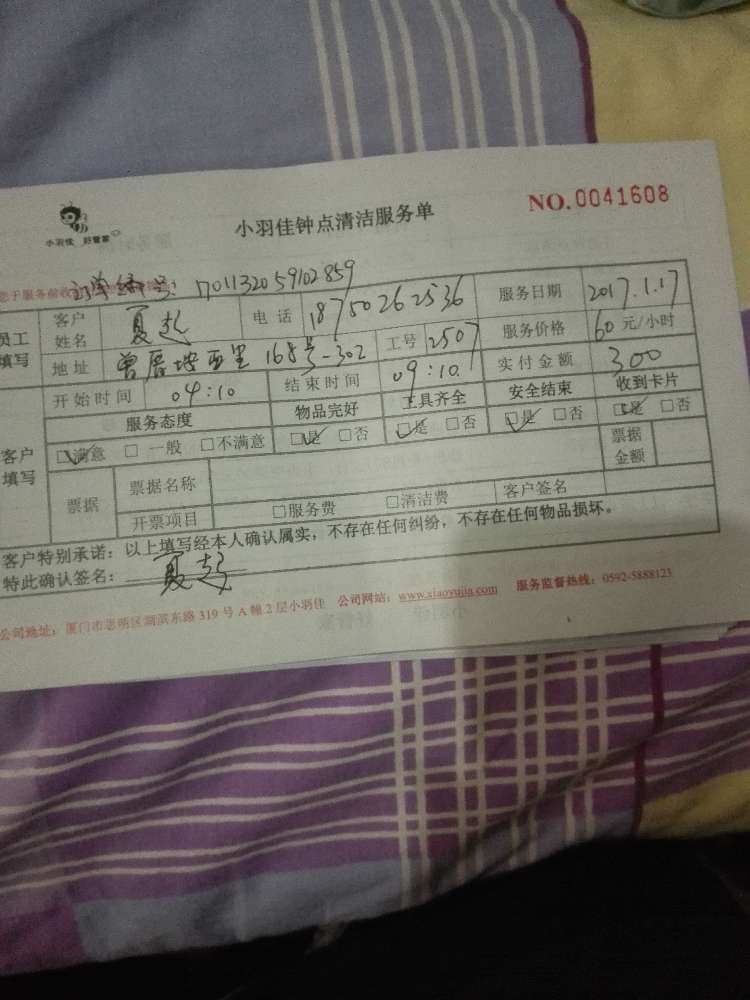 小羽佳 好管家
小羽佳钟点清洁服务单
NO.0041608
订单编号: 701132059102859
员工填写 客户姓名 夏起 电话 18750262536 服务日期 2017.1.17
地址 曾厝垵西里168号-302 工号 2507 服务价格 60元/小时
开始时间 04:10 结束时间 09:10 实付金额 300
客户填写 服务态度 物品完好 工具齐全 安全结束 收到卡片
☑满意 □一般 □不满意 ☑是 □否 ☑是 □否 ☑是 □否 ☑是 □否
票据 票据名称 票据金额
开票项目 □服务费 □清洁费 客户签名
客户特别承诺:以上填写经本人确认属实,不存在任何纠纷,不存在任何物品损坏。
特此确认签名: 夏起
公司地址:厦门市思明区湖滨东路319号A幢2层小羽佳 公司网站:www.xiaoyujia.com 服务监督热线:0592-5888123